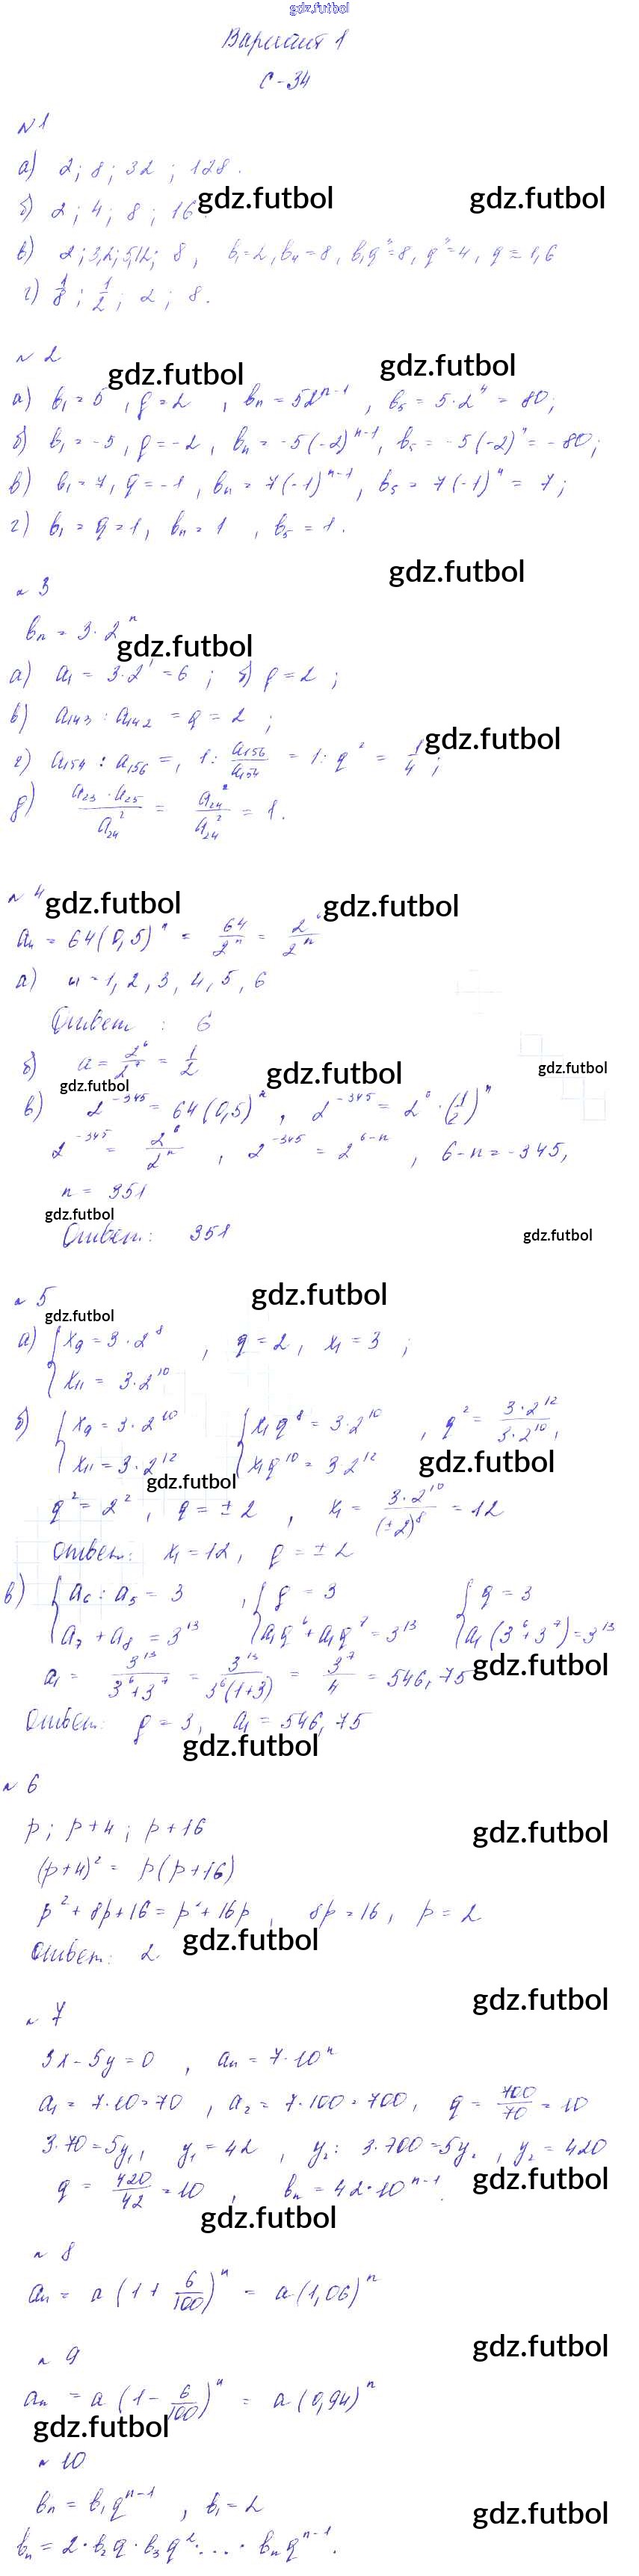 gdz.futbol
Вариант 1
С-34
№1
а) 2; 8; 32; 128.
gdz.futbol gdz.futbol
б) 2; 4; 8; 16.
в) 2; 3,2; 5,12; 8, b₁=2, b₄=8, b₁q³=8, q³=4, q≈1,6
г) 1/8; 1/2; 2; 8.
№2
gdz.futbol gdz.futbol
а) b₁=5, q=2, bₙ=5·2ⁿ⁻¹, b₅=5·2⁴=80;
б) b₁=-5, q=-2, bₙ=-5(-2)ⁿ⁻¹, b₅=-5(-2)⁴=-80;
в) b₁=7, q=-1, bₙ=7(-1)ⁿ⁻¹, b₅=7(-1)⁴=7;
г) b₁=q=1, bₙ=1, b₅=1.
gdz.futbol
№3
bₙ=3·2ⁿ
gdz.futbol
а) a₁=3·2¹=6; б) q=2;
в) a₁₄₃:a₁₄₂=q=2;
gdz.futbol
г) a₁₅₄:a₁₅₆=, 1:a₁₅₆/a₁₅₄=1:q²=1/4;
д) a₂₃·a₂₅/a₂₄²=a₂₄²/a₂₄²=1.
№4
gdz.futbol gdz.futbol
aₙ=64(0,5)ⁿ=64/2ⁿ=2⁶/2ⁿ
а) n=1, 2, 3, 4, 5, 6
Ответ: 6
б) a=2⁶/2⁷=1/2
gdz.futbol gdz.futbol gdz.futbol
в) 2⁻³⁴⁵=64(0,5)ⁿ, 2⁻³⁴⁵=2⁶·(1/2)ⁿ
2⁻³⁴⁵=2⁶/2ⁿ, 2⁻³⁴⁵=2⁶⁻ⁿ, 6-n=-345,
n=351
gdz.futbol
Ответ: 351
gdz.futbol
№5
gdz.futbol
gdz.futbol
а) { x₉=3·2⁸, q=2, x₁=3;
x₁₁=3·2¹⁰
б) { x₉=3·2¹⁰ { x₁q⁸=3·2¹⁰, q²=3·2¹²/3·2¹⁰,
x₁₁=3·2¹² x₁q¹⁰=3·2¹²
gdz.futbol
gdz.futbol
q²=2², q=±2, x₁=3·2¹⁰/(±2)⁸=12
Ответ: x₁=12, q=±2
в) { a₆:a₅=3, { q=3 { q=3
a₇+a₈=3¹³ a₁q⁶+a₁q⁷=3¹³ a₁(3⁶+3⁷)=3¹³
a₁=3¹³/3⁶+3⁷=3¹³/3⁶(1+3)=3⁷/4=546,75
gdz.futbol
Ответ: q=3, a₁=546,75
gdz.futbol
№6
p; p+4; p+16
gdz.futbol
(p+4)²=p(p+16)
p²+8p+16=p²+16p, 8p=16, p=2
gdz.futbol
Ответ: 2
gdz.futbol
№7
3x-5y=0, aₙ=7·10ⁿ
a₁=7·10=70, a₂=7·100=700, q=700/70=10
3·70=5y₁, y₁=42, y₂: 3·700=5y₂, y₂=420
q=420/42=10, bₙ=42·10ⁿ⁻¹.
gdz.futbol
gdz.futbol
№8
aₙ=a(1+6/100)ⁿ=a(1,06)ⁿ
gdz.futbol
№9
aₙ=a(1-6/100)ⁿ=a(0,94)ⁿ
gdz.futbol
№10
bₙ=b₁qⁿ⁻¹, b₁=2
gdz.futbol
bₙ=2·b₂q·b₃q²·...·bₙqⁿ⁻¹.